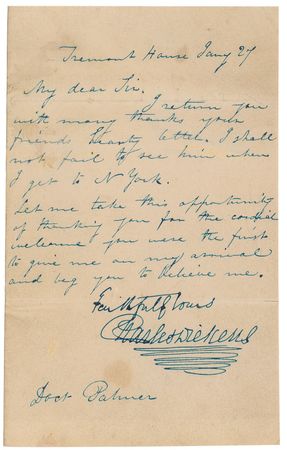 Tremont House Jany 27
My dear Sir.
I return you
with many thanks your
friends hearty letter. I shall
not fail to see him when
I get to N York.
Let me take this opportunity
of thanking you for the cordial
welcome you were the first
to give me on my arrival
and beg you to believe me.
Faithfully Yours
Charles Dickens
Doct Palmer